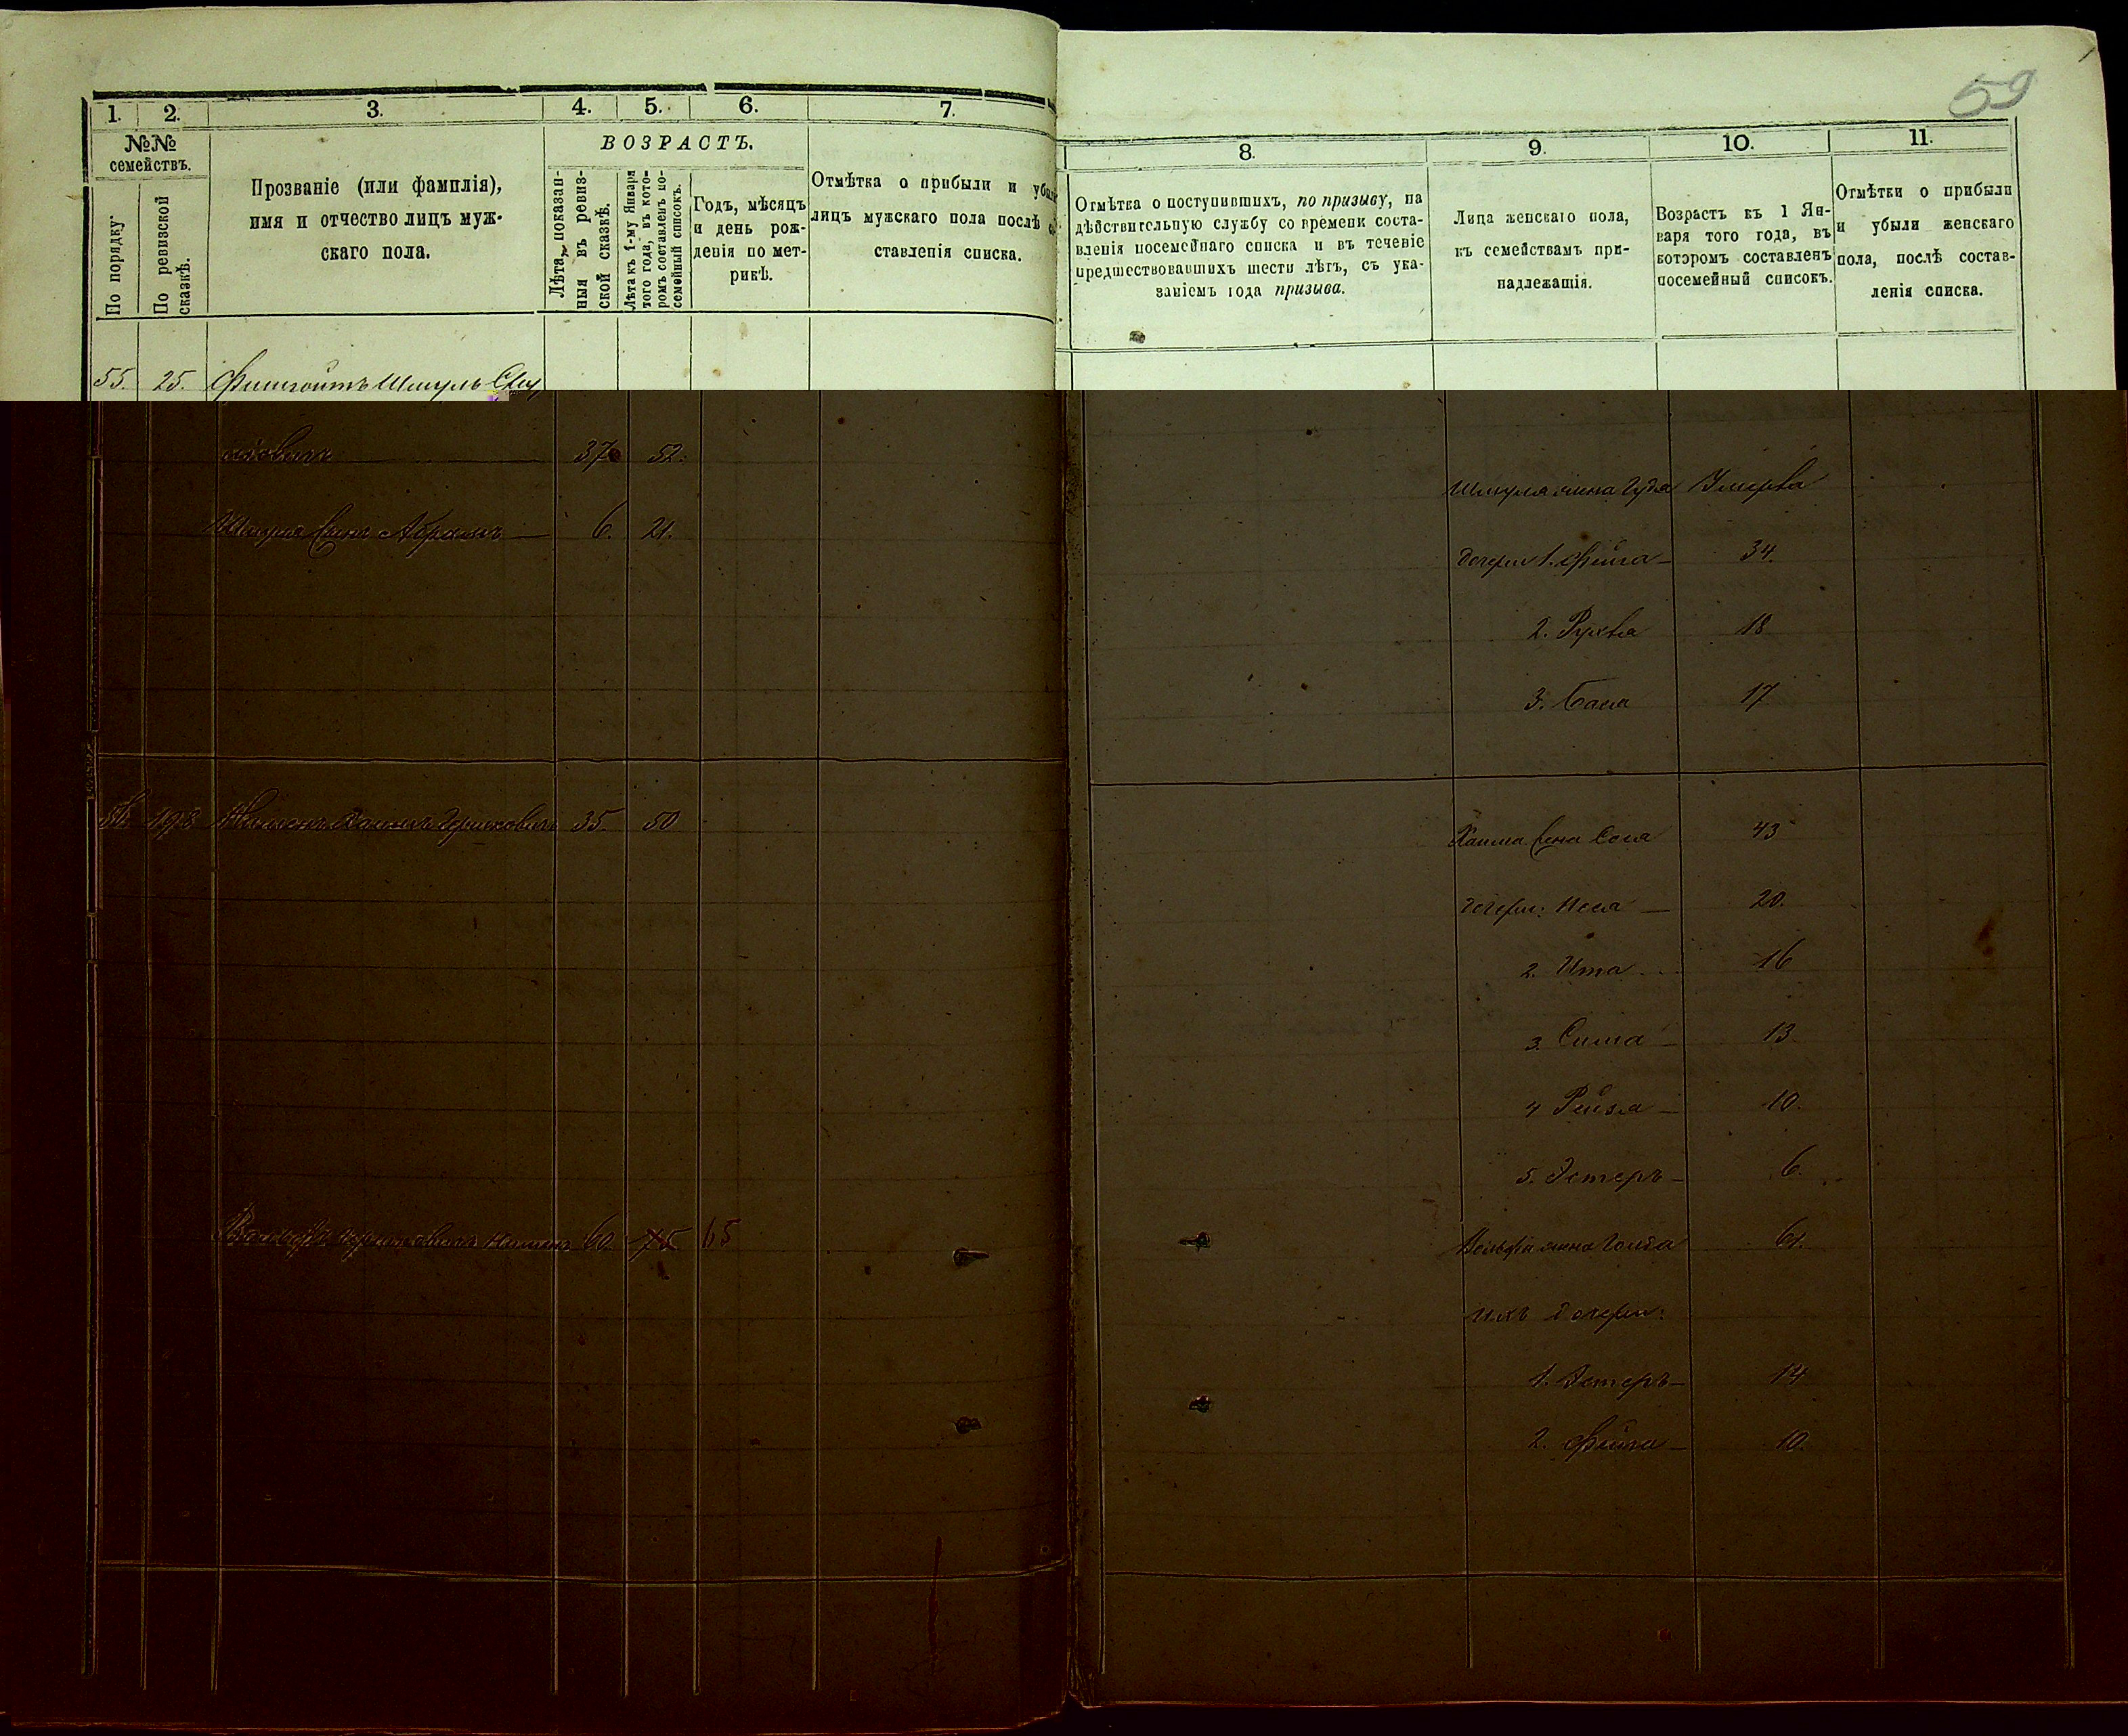 59
1. 2. 3. 4. 5. 6. 7.
№№ семействъ.
По порядку
По ревизской сказкѣ.
Прозваніе (или фамилія),
имя и отчество лицъ муж-
скаго пола.
ВОЗРАСТЪ.
Лѣта, показан-
ныя въ ревиз-
ской сказкѣ.
Лѣта къ 1-му Января
того года, въ кото-
ромъ составленъ по-
семейный списокъ.
Годъ, мѣсяцъ
и день рож-
денія по мет-
рикѣ.
Отмѣтка о прибыли и
лицъ мужскаго пола послѣ
ставленія списка.
8. 9. 10. 11.
Отмѣтка о поступившихъ, по призыву, на
дѣйствительную службу со времени соста-
вленія посемейнаго списка и въ теченіе
предшествовавшихъ шести лѣтъ, съ ука-
заніемъ года призыва.
Лица женскаго пола,
къ семействамъ при-
надлежащія.
Возрастъ къ 1 Ян-
варя того года, въ
которомъ составленъ
посемейный списокъ.
Отмѣтки о прибыли
и убыли женскаго
пола, послѣ состав-
ленія списка.
55. 25. Шмуль
37 52.
Шмуля сынъ Абрамъ 6. 21.
198 Хаимъ Гершковичъ 35. 50
60. 75 65
Шмуля жена Гудя Умерла
дочери 1. Фейга 34.
2. Рухля 18
3. Бася 17
Хаима жена Сося 43
дочери: Неся 20.
2. Ита 16
3. Сима 13
4 Рейзя 10.
5. Эстеръ 6.
Вольфа жена Голда 61.
Ихъ дочери:
1. Эстеръ 14
2. Фейга 10.